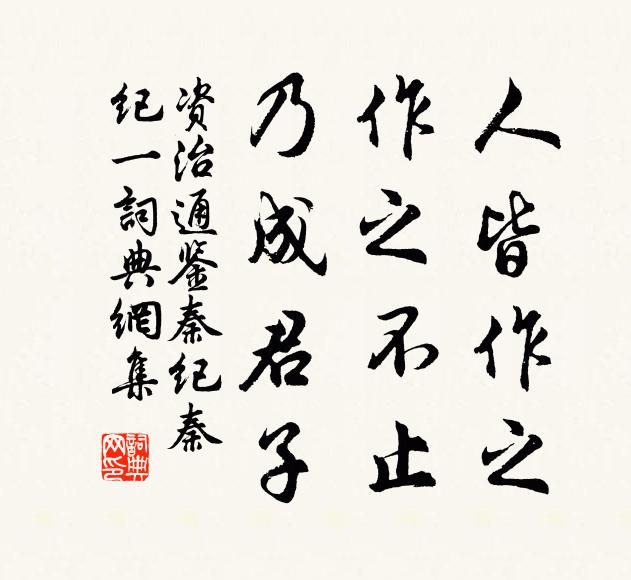 人皆作之
作之不止
乃成君子
资治通鉴秦纪秦
纪一词典網集
詞典
网印